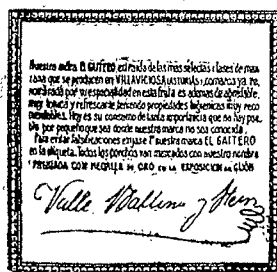 Nuestra sidra EL GAITERO extraida de las más selectas clases de man-
zana que se producen en VILLAVICIOSA (ASTURIAS), comarca ya re-
nombrada por su especialidad en esta fruta es ademas de agradable,
muy tónica y refrescante teniendo propiedades higienicas muy reco-
mendables. Hoy es su consumo de tanta importancia que no hay pue-
blo por pequeño que sea donde nuestra marca no sea conocida.
Para evitar falsificaciones exijase nuestra marca EL GAITERO
en la etiqueta. Todos los corchos van marcados con nuestro nombre
PREMIADA CON MEDALLA DE ORO EN LA EXPOSICION DE GIJÓN
Valle, Ballina y Fern